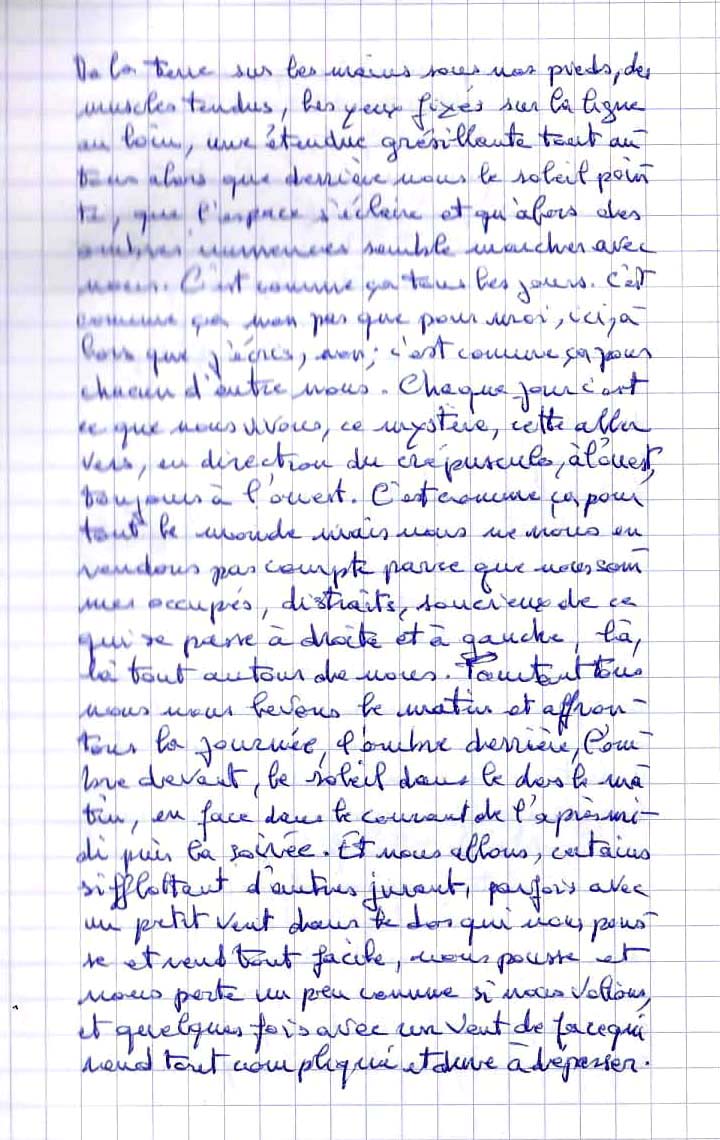 De la terre sur les mains sous nos pieds, des
muscles tendus, les yeux fixés sur la ligne
au loin, une étendue grésillante tout au-
tour alors que derrière nous le soleil poin
te, que l'espace s'éclaire et qu'alors des
ombres immenses semble marcher avec
nous. C'est comme ça tous les jours. C'est
comme ça non pas que pour moi, ici, a
lors que j'écris, non; c'est comme ça pour
chacun d'entre nous. Chaque jour c'est
ce que nous vivons, ce mystère, cette aller
vers, en direction du crépuscule, à l'ouest,
toujours à l'ouest. C'est comme ça pour
tout le monde mais nous ne nous en
rendons pas compte parce que nous som
mes occupés, distraits, soucieux de ce
qui se passe à droite et à gauche, là,
là tout autour de nous. Pourtant tous
nous nous levons le matin et affron-
tons la journée, l'ombre derrière, l'om-
bre devant, le soleil dans le dos le ma
tin, en face dans le courant de l'après mi-
di puis la soirée. Et nous allons, certains
sifflottant d'autres jurant, parfois avec
un petit vent dans le dos qui nous pous-
se et rend tout facile, nous pousse et
nous porte un peu comme si nous volions,
et quelques fois avec un vent de face qui
rend tout compliqué et dure à dépasser.